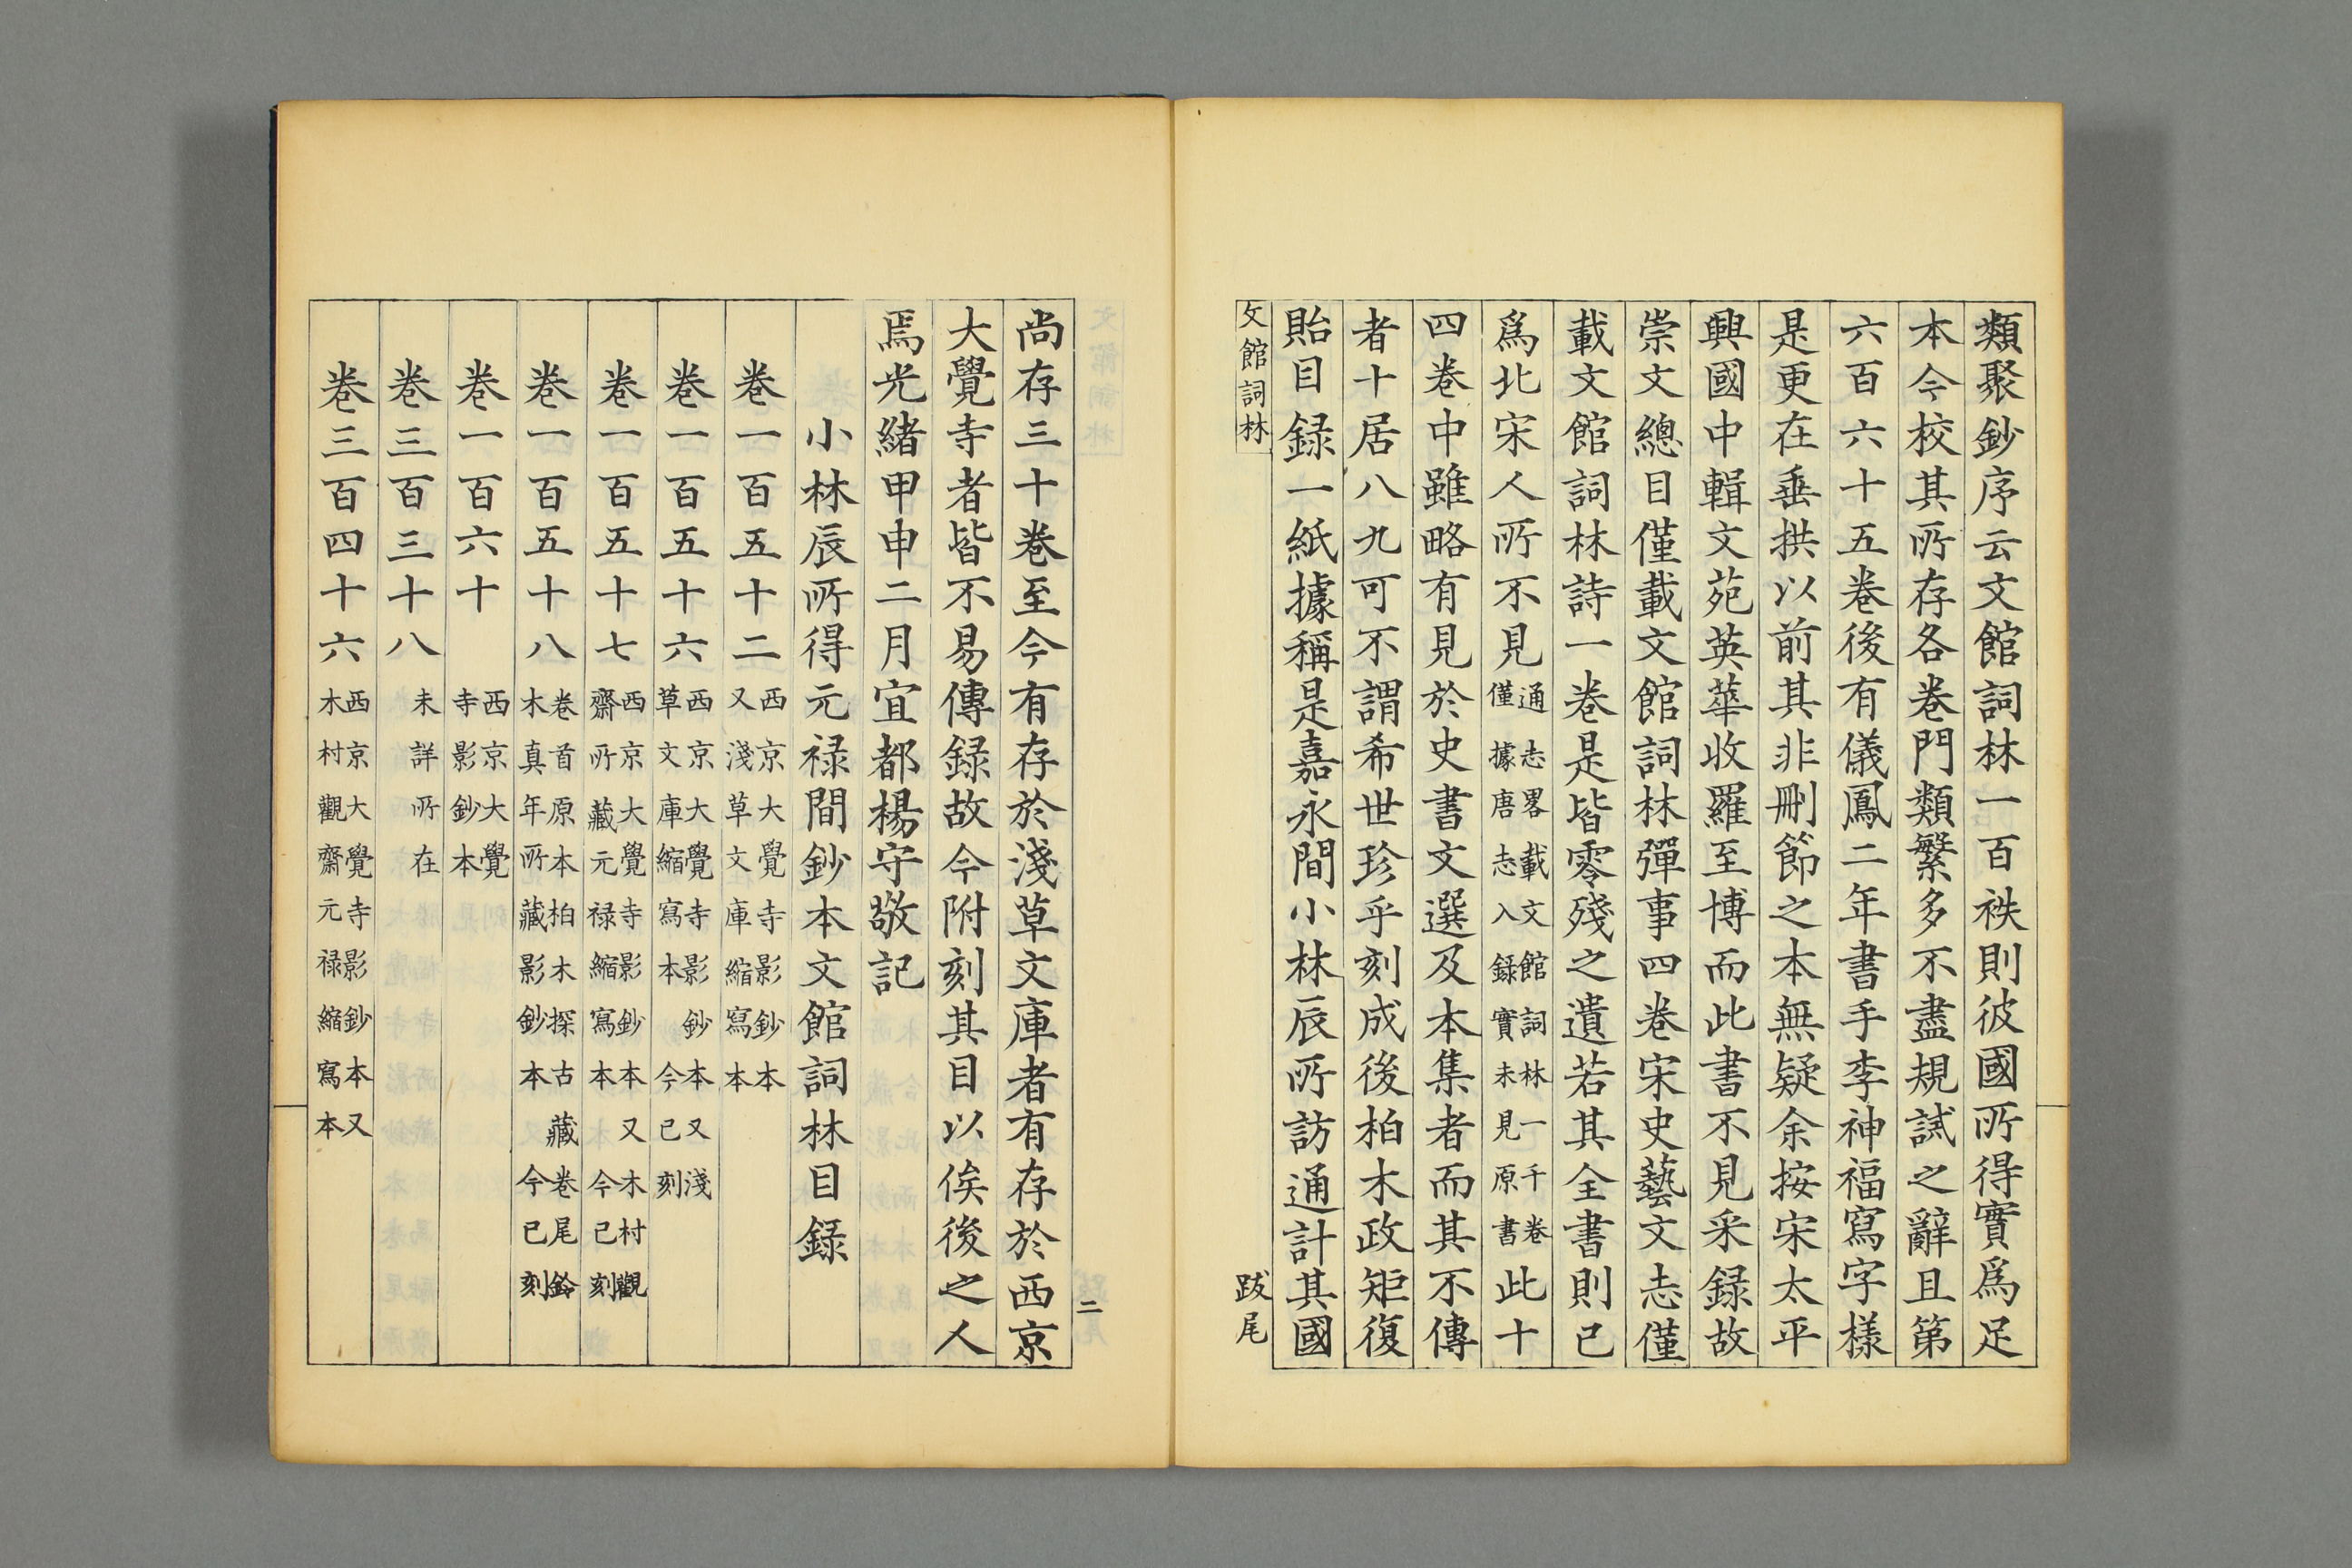 類聚鈔序云文館詞林一百袟則彼國所得實爲足
本今校其所存各卷門類繁多不盡規試之辭且第
六百六十五卷後有儀鳳二年書手李神福寫字樣
是更在垂拱以前其非刪節之本無疑余按宋太平
興國中輯文苑英華收羅至博而此書不見采録故
崇文總目僅載文館詞林彈事四卷宋史藝文志僅
載文館詞林詩一卷是皆零殘之遺若其全書則已
爲北宋人所不見通志畧載文館詞林一千卷僅據唐志入録實未見原書此十
四卷中雖略有見於史書文選及本集者而其不傳
者十居八九可不謂希世珍乎刻成後柏木政矩復
貽目録一紙據稱是嘉永間小林辰所訪通計其國
文館詞林
跋尾
二
尚存三十卷至今有存於淺草文庫者有存於西京
大覺寺者皆不易傳録故今附刻其目以俟後之人
焉光緒甲申二月宜都楊守敬記
小林辰所得元禄間鈔本文館詞林目録
卷一百五十二西京大覺寺影鈔本又淺草文庫縮寫本
卷一百五十六西京大覺寺影鈔本又淺草文庫縮寫本今已刻
卷一百五十七西京大覺寺影鈔本又木村觀齋所藏元禄縮寫本今已刻
卷一百五十八卷首原本柏木探古藏卷尾鈴木真年所藏影鈔本今已刻
卷一百六十西京大覺寺影鈔本
卷三百三十八未詳所在
卷三百四十六西京大覺寺影鈔本又木村觀齋元禄縮寫本